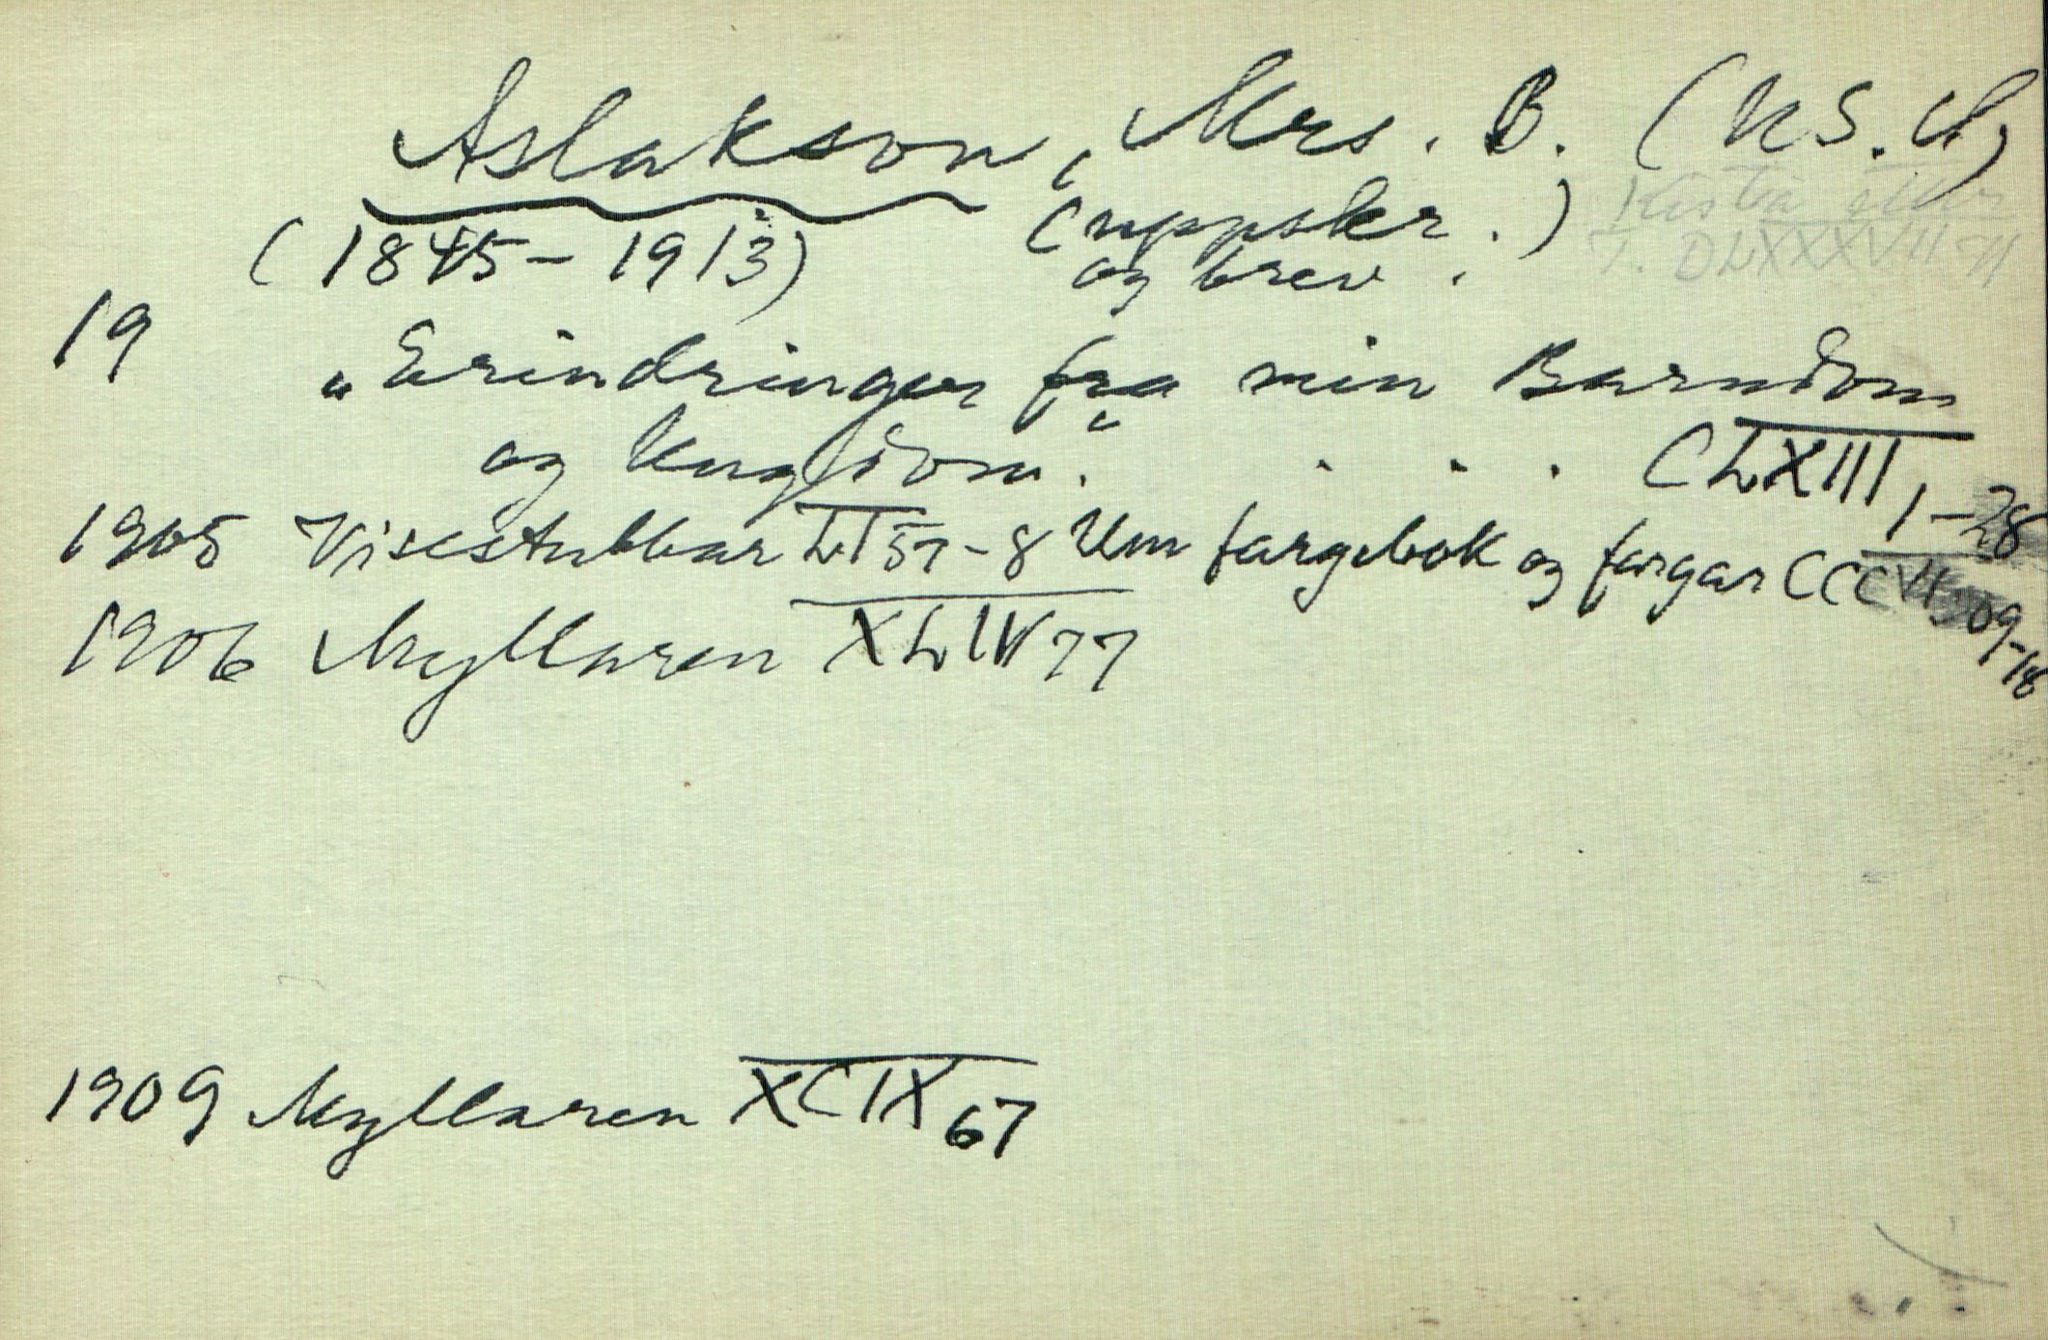 Aslakson, Mrs. B. (U.S.A)
(1845-1913) (uppskr.)
og brev.
19 "Erindringer fra min Barndom
og Ungdom". . . . CLXIII 1-28
1905 Visestubbar LI 57-8 Um fargebok og fargar CCCVII 09-18
1906 Myllaren XLIV 77
1909 Myllaren XCIX 67